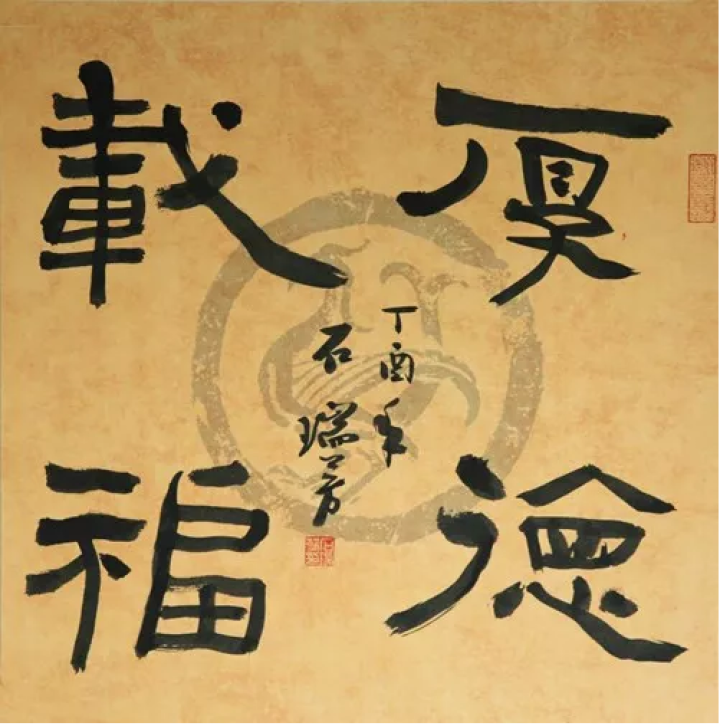 厚德
載福
丁酉年
石瑞芳